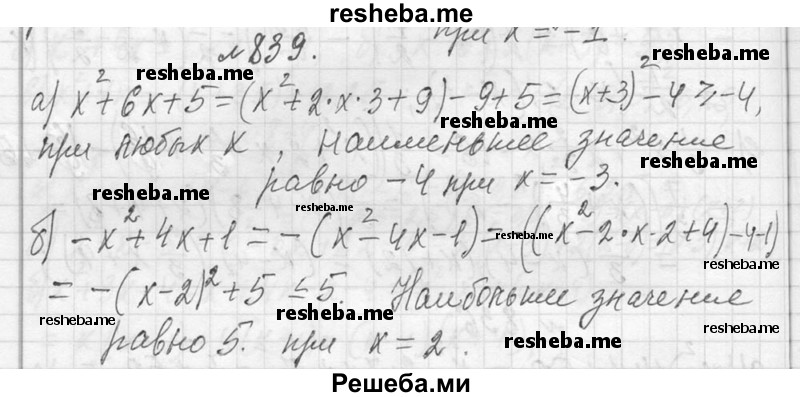 resheba.me
при x = -1.
№839.
resheba.me resheba.me
а) x²+6x+5=(x²+2·x·3+9)-9+5=(x+3)²-4≥-4,
resheba.me
при любых x, Наименьшее значение
resheba.me
resheba.me равно -4 при x=-3.
resheba.me
б) -x²+4x+1=-(x²-4x-1)=-((x²-2·x·2+4)-4-1)
resheba.me resheba.me
=-(x-2)²+5≤5. Наибольшее значение
resheba.me resheba.me resheba.me
равно 5. при x=2.
resheba.me
Решеба.ми